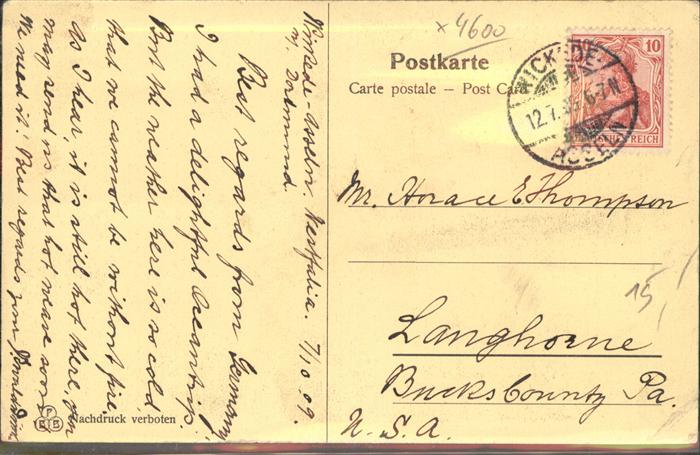 Wickede-Asseln. Westfalia. 7/10 09.
n/ Dortmund
Best regards from Germany
I had a delightful Oceantrip.
But the weather here is so cold
that we cannot be without fire.
As I hear, it is still hot there, you
may send us that hot wave soon
We need it! Best regards from
Nachdruck verboten
× 4600
Postkarte
Carte postale – Post Car
10
WICKEDE-
12.7. 6-7N
ASSELN
REICH
Mr. Horace E Thompson
15
Langhorne
Bucks County Pa.
U. S. A.